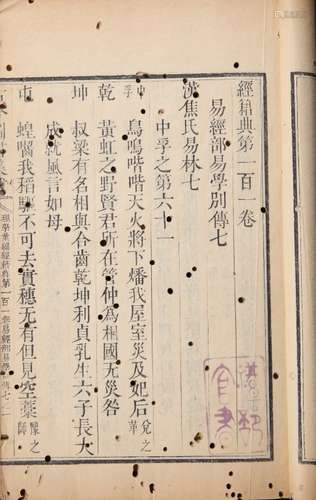 經籍典第一百一卷
易經部易學別傳七
漢焦氏易林七
中孚之第六十一
中孚 鳥鳴喈喈天火將下燔我屋室災及妃后 兌之革
乾 黃虹之野賢君所在管仲為相國无災咎
坤 叔梁有名相與合齒乾坤利貞乳生六子長大
成就風言如母
屯 蝗嚙我稻驅不可去實穗无有但見空藁 豫之
理學彙編經籍典第一百一卷易經部易學別傳七
官書